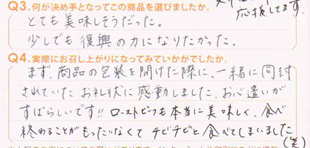 Q3.何が決め手となってこの商品を選びましたか。
応援してます。
とても美味しそうだった。
少しでも復興の力になりたかった。
Q4.実際にお召し上がりになってみていかがでしたか。
まず、商品の包装を開けた際に、一緒に同封
されていたお礼状に感動しました。お心遣いが
すばらしいです!!ローストビーフも本当に美味しく、食べ
終めることがもったいなくてチビチビと食べてしまいました
(笑)